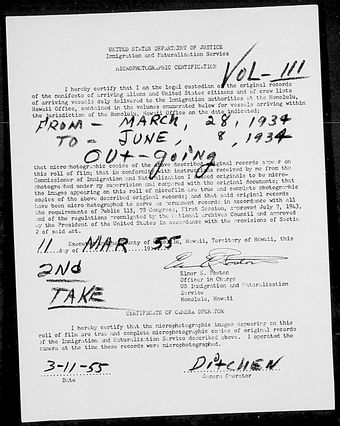 UNITED STATES DEPARTMENT OF JUSTICE
Immigration and Naturalization Service
MICROPHOTOGRAPHIC CERTIFICATION
VOL-III
I hereby certify that I am the legal custodian of the original records
of the manifests of arriving aliens and United States citizens and of crew lists
of arriving vessels duly delivered to the Immigration authorities at the Honolulu,
Hawaii Office, contained in the volumes enumerated below for vessels arriving within
the jurisdiction of the Honolulu, Hawaii Office on the date indicated:
FROM - MARCH, 28, 1934
TO - JUNE, 8, 1934
Out going
that microphotographic copies of the above described original records appear on
this roll of film; that in conformity with instructions received by me from the
Commissioner of Immigration and Naturalization I caused originals to be micro-
photographed under my supervision and compared with the original documents; that
the images appearing on this roll of microfilm are true and complete photographic
copies of the above described original records; and that said original records
have been microphotographed to serve as permanent records in accordance with all
the requirements of Public 115, 78 Congress, First Session, approved July 7, 1943,
and of the regulations promulgated by the National Archives Council and approved
by the President of the United States in accordance with the provisions of Section
2 of said act.
Executed at County of Honolulu, Hawaii, Territory of Hawaii, this
11 day of MAR 1955
2nd
TAKE
Elmer S. Poston
Officer in Charge
US Immigration and Naturalization
Service
Honolulu, Hawaii
CERTIFICATE OF CAMERA OPERATOR
I hereby certify that the microphotographic images appearing on this
roll of film are true and complete microphotographic copies of original records
of the Immigration and Naturalization Service described above. I operated the
camera at the time these records were microphotographed.
3-11-55 DitCHEN
Date Camera Operator